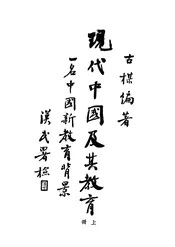 古楳編著
現代中國及其教育
一名中國新教育背景
漢民署檢
上冊